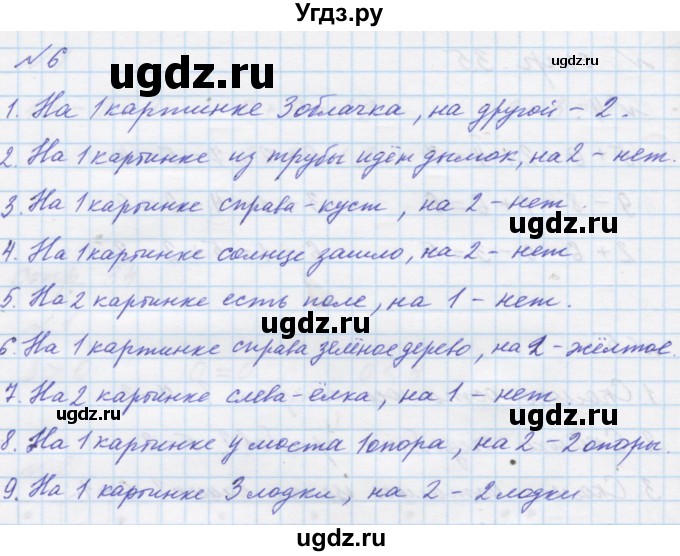 Угдз.ру
№ 6
ugdz.ru
1. На 1 картинке 3 облачка, на другой – 2.
2. На 1 картинке из трубы идён дымок, на 2 – нет.
3. На 1 картинке справа - куст, на 2 – нет.
ugdz.ru
4. На 1 картинке солнце зашло, на 2 – нет
5. На 2 картинке есть поле, на 1 – нет.
ugdz.ru
6. На 1 картинке справа зелёное дерево, на 2 – жёлтое.
7. На 2 картинке слева - ёлка, на 1 – нет.
ugdz.ru ugdz.ru
8. На 1 картинке у моста 1 опора, на 2 – 2 опоры.
9. На 1 картинке 3 лодки, на 2 – 2 лодки
ugdz.ru
Угдз.ру